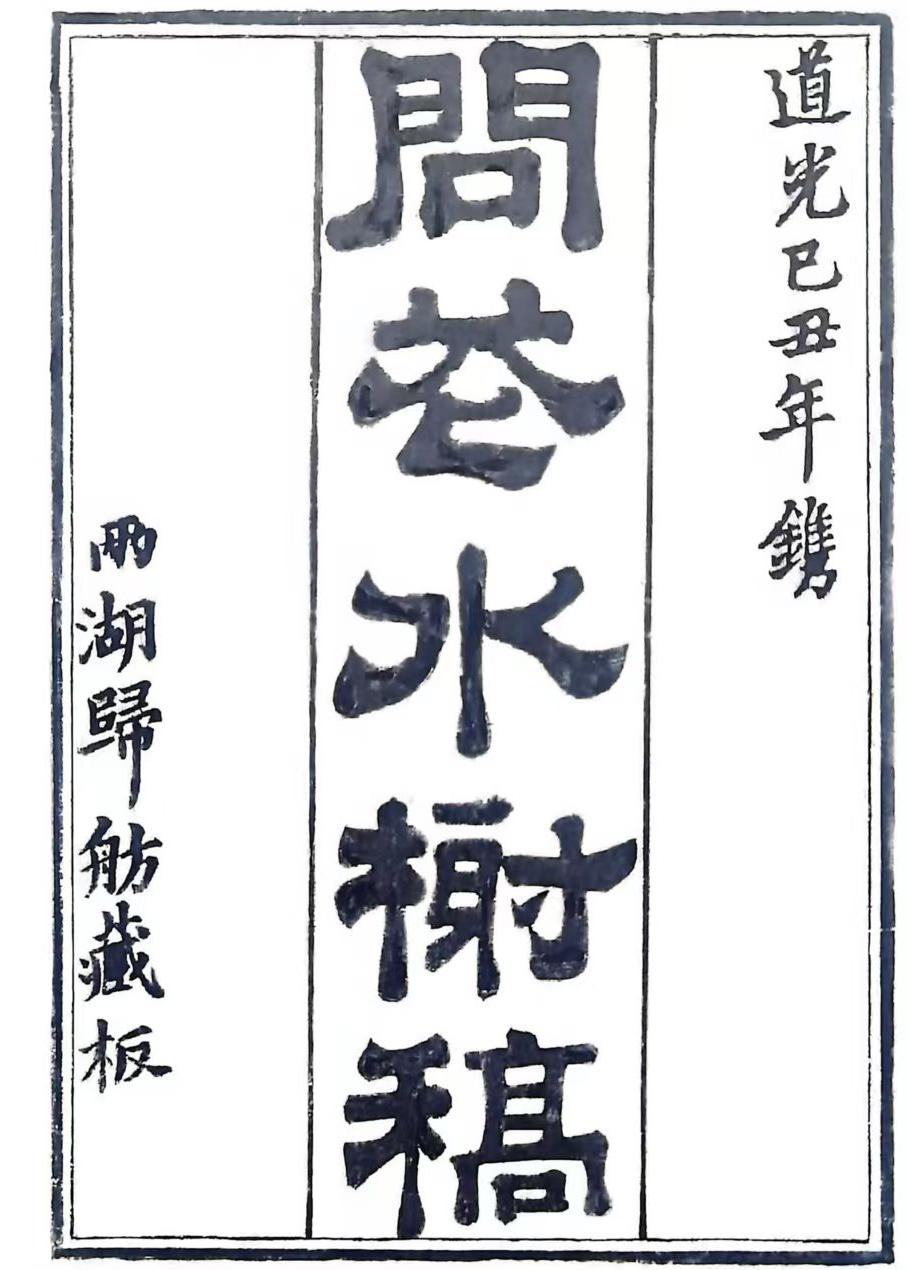 道光己丑年鐫
問花水榭稿
兩湖歸舫藏板